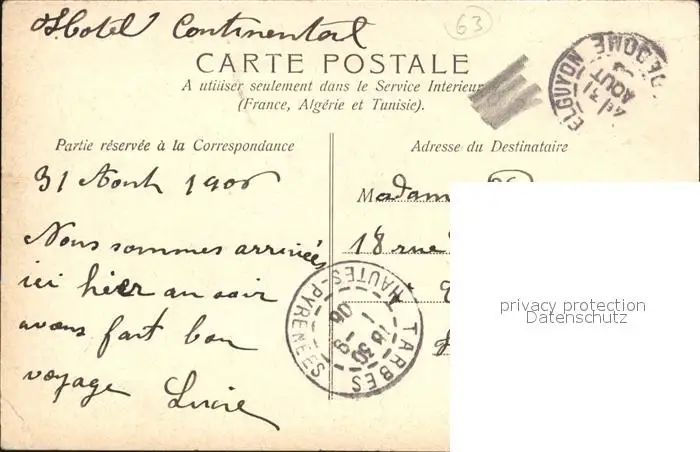 Hotel Continental
63
CARTE POSTALE
A utiiiser seulement dans le Service Interieur
(France, Algérie et Tunisie).
ELGUYON
DE DOME
31
AOUT
Partie réservée à la Correspondance
Adresse du Destinataire
31 Aout 1906
Nous sommes arrivées
ici hier au soir
avons fait bon
voyage Lucie
Madam
18 rue
à
TARBES
HAUTES-PYRENEES
18 30
1 - 9
06
privacy protection
Datenschutz